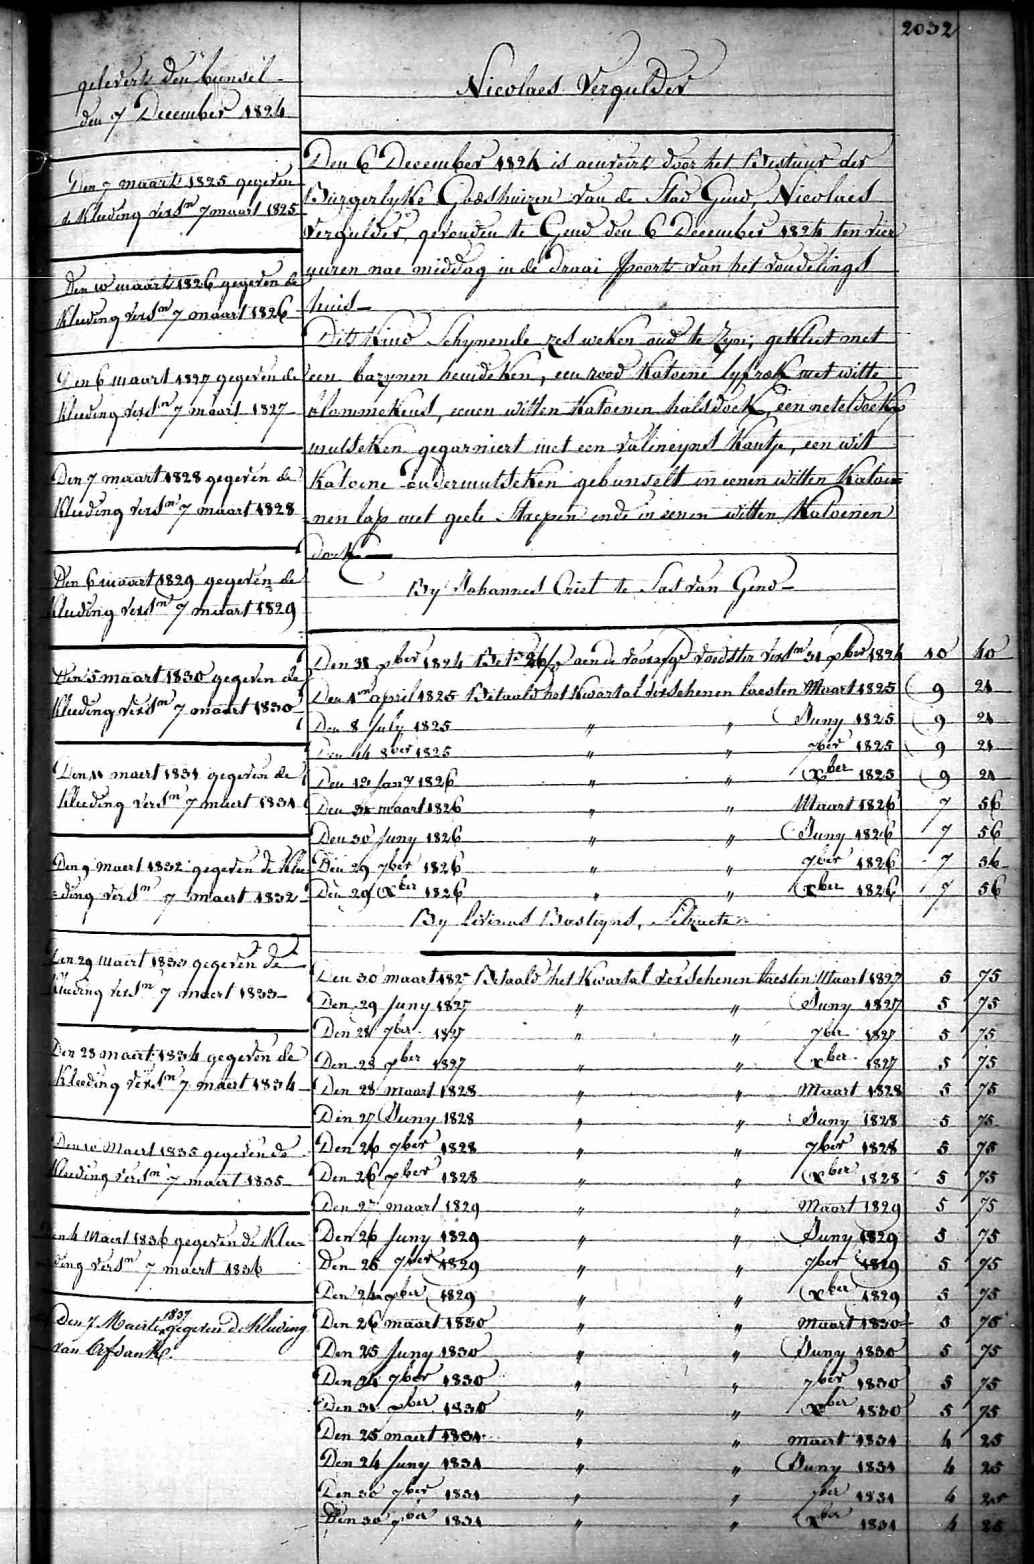 2032
Nicolaes Vergulder
gelevert den bunsel
den 7 December 1824
Den 7 maart 1825 gegeven
de Kleding versn 7 maart 1825
Den 10 maart 1826 gegeven de
Kleeding versn 7 maart 1826
Den 6 maart 1827 gegeven de
Kleeding versn 7 maart 1827
Den 7 maart 1828 gegeven de
Kleeding versn 7 maart 1828
Den 6 maart 1829 gegeven de
Kleeding versn 7 maart 1829
Den 5 maart 1830 gegeven de
Kleeding versn 7 maart 1830
Den 11 maert 1831 gegeven de
Kleeding versn 7 maert 1831
Den 9 maert 1832 gegeven de Klee
=ding versn 7 maert 1832
Den 29 maert 1833 gegeven de
Kleeding versn 7 maert 1833
Den 23 maert 1834 gegeven de
Kleeding versn 7 maert 1834
Den 10 Maert 1835 gegeven de
Kleeding versn 7 maert 1835
Den 4 Maert 1836 gegeven de Klee
ding versn 7 maert 1836
Den 7 Maert 1837 gegeven de Kleeding
van Afdank.
Den 6 December 1824 is aenveirt door het Bestuur der
Burgerlyke Godshuizen van de Stad Gend, Nicolaes
Vergulder, gevonden te Gend den 6 December 1824 ten vier
uuren nae middag in de Draai Poorte van het vondelings
huis
Dit Kind Schynende zes weken oud te Zyn; gekleet met
een bazynen hemdeken, een rood Katoene lyfrok met witte
blommekens, eenen witten Katoenen halsdoek, een neteldoeke
mutseken gegarniert met een valineynse Kantje, een wit
Katoene ondermutseken gebunselt in eenen witten Katoe=
nen lap met geele Strepen ende in eenen witten Katoenen
doek
By Johannes Criel te Sas van Gend
Den 31 xber 1824 Bet aende voorzge voedster versn 31 xber 1824 10 40
Den 1n april 1825 Betaald het Kwartal verschenen laesten Maart 1825 9 21
Den 8 July 1825 " " Juny 1825 9 21
Den 14 8ber 1825 " " 7ber 1825 9 21
Den 13 Jany 1826 " " Xber 1825 9 21
Den 31 maart 1826 " " Maart 1826 7 56
Den 30 Juny 1826 " " Juny 1826 7 56
Den 29 7ber 1826 " " 7ber 1826 7 56
Den 29 Xber 1826 " " Xber 1826 7 56
By Livinus Bosteyns,
Den 30 maart 1827 Betaald het Kwartal verschenen laesten Maart 1827 5 75
Den 29 Juny 1827 " " Juny 1827 5 75
Den 28 7ber 1827 " " 7ber 1827 5 75
Den 28 xber 1827 " " Xber 1827 5 75
Den 28 maart 1828 " " Maart 1828 5 75
Den 27 Juny 1828 " " Juny 1828 5 75
Den 26 7ber 1828 " " 7ber 1828 5 75
Den 26 xber 1828 " " Xber 1828 5 75
Den 27 maart 1829 " " Maart 1829 5 75
Den 26 Juny 1829 " " Juny 1829 5 75
Den 25 7ber 1829 " " 7ber 1829 5 75
Den 24 xber 1829 " " Xber 1829 5 75
Den 26 maart 1830 " " Maart 1830 5 75
Den 25 Juny 1830 " " Juny 1830 5 75
Den 24 7ber 1830 " " 7ber 1830 5 75
Den 31 xber 1830 " " Xber 1830 5 75
Den 25 maert 1831 " " maert 1831 4 25
Den 24 Juny 1831 " " Juny 1831 4 25
Den 30 7ber 1831 " " 7ber 1831 4 25
Den 30 xber 1831 " " Xber 1831 4 25